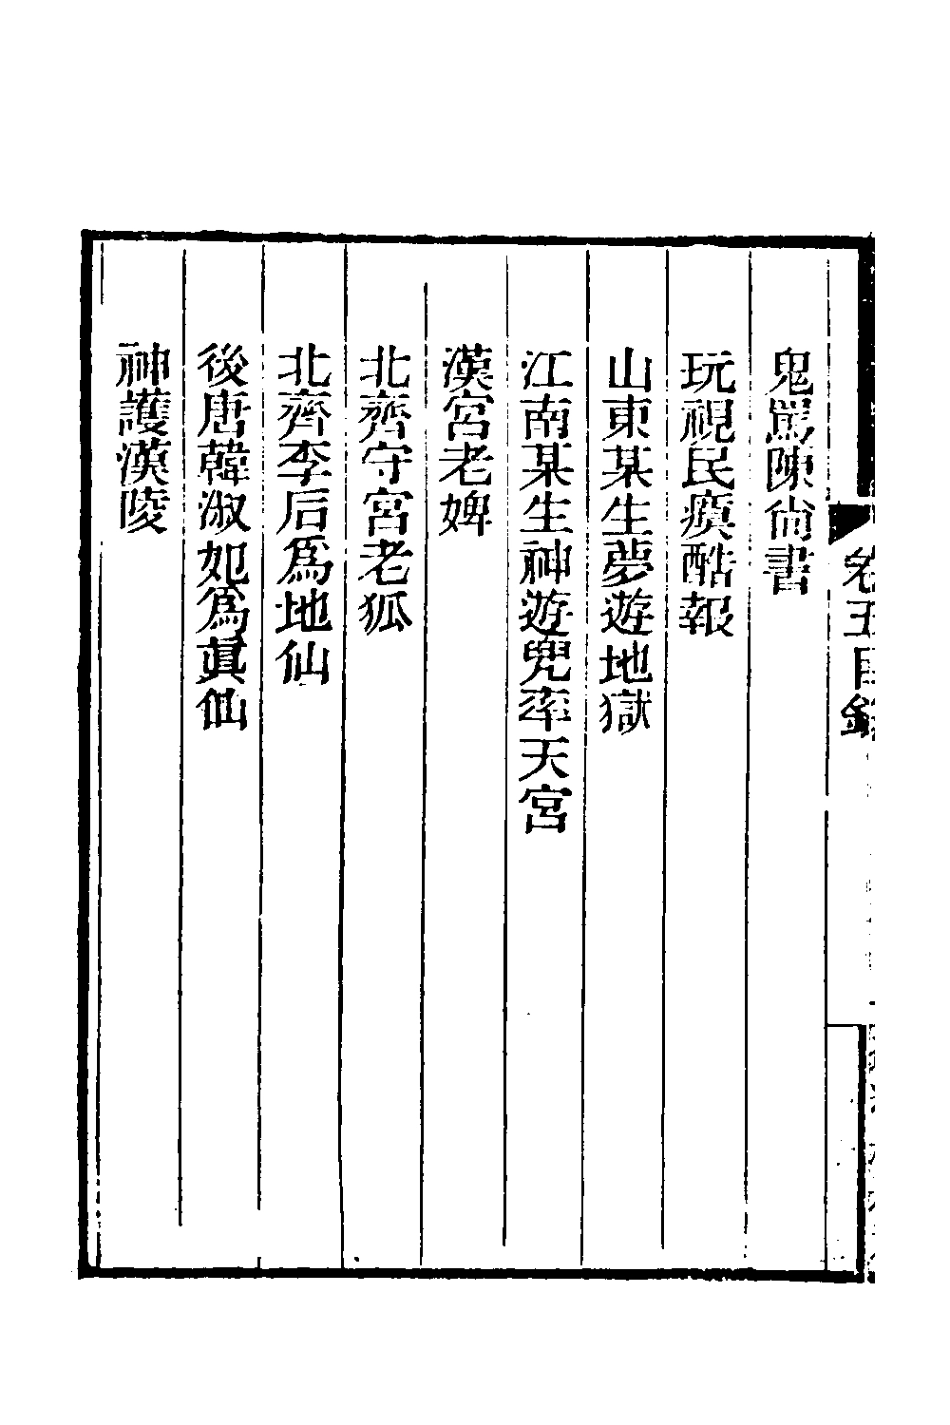 卷五目錄
鬼罵陳尙書
玩視民瘼酷報
山東某生夢遊地獄
江南某生神遊兜率天宮
漢宮老婢
北齊守宮老狐
北齊李后爲地仙
後唐韓淑妃爲眞仙
神護漢陵